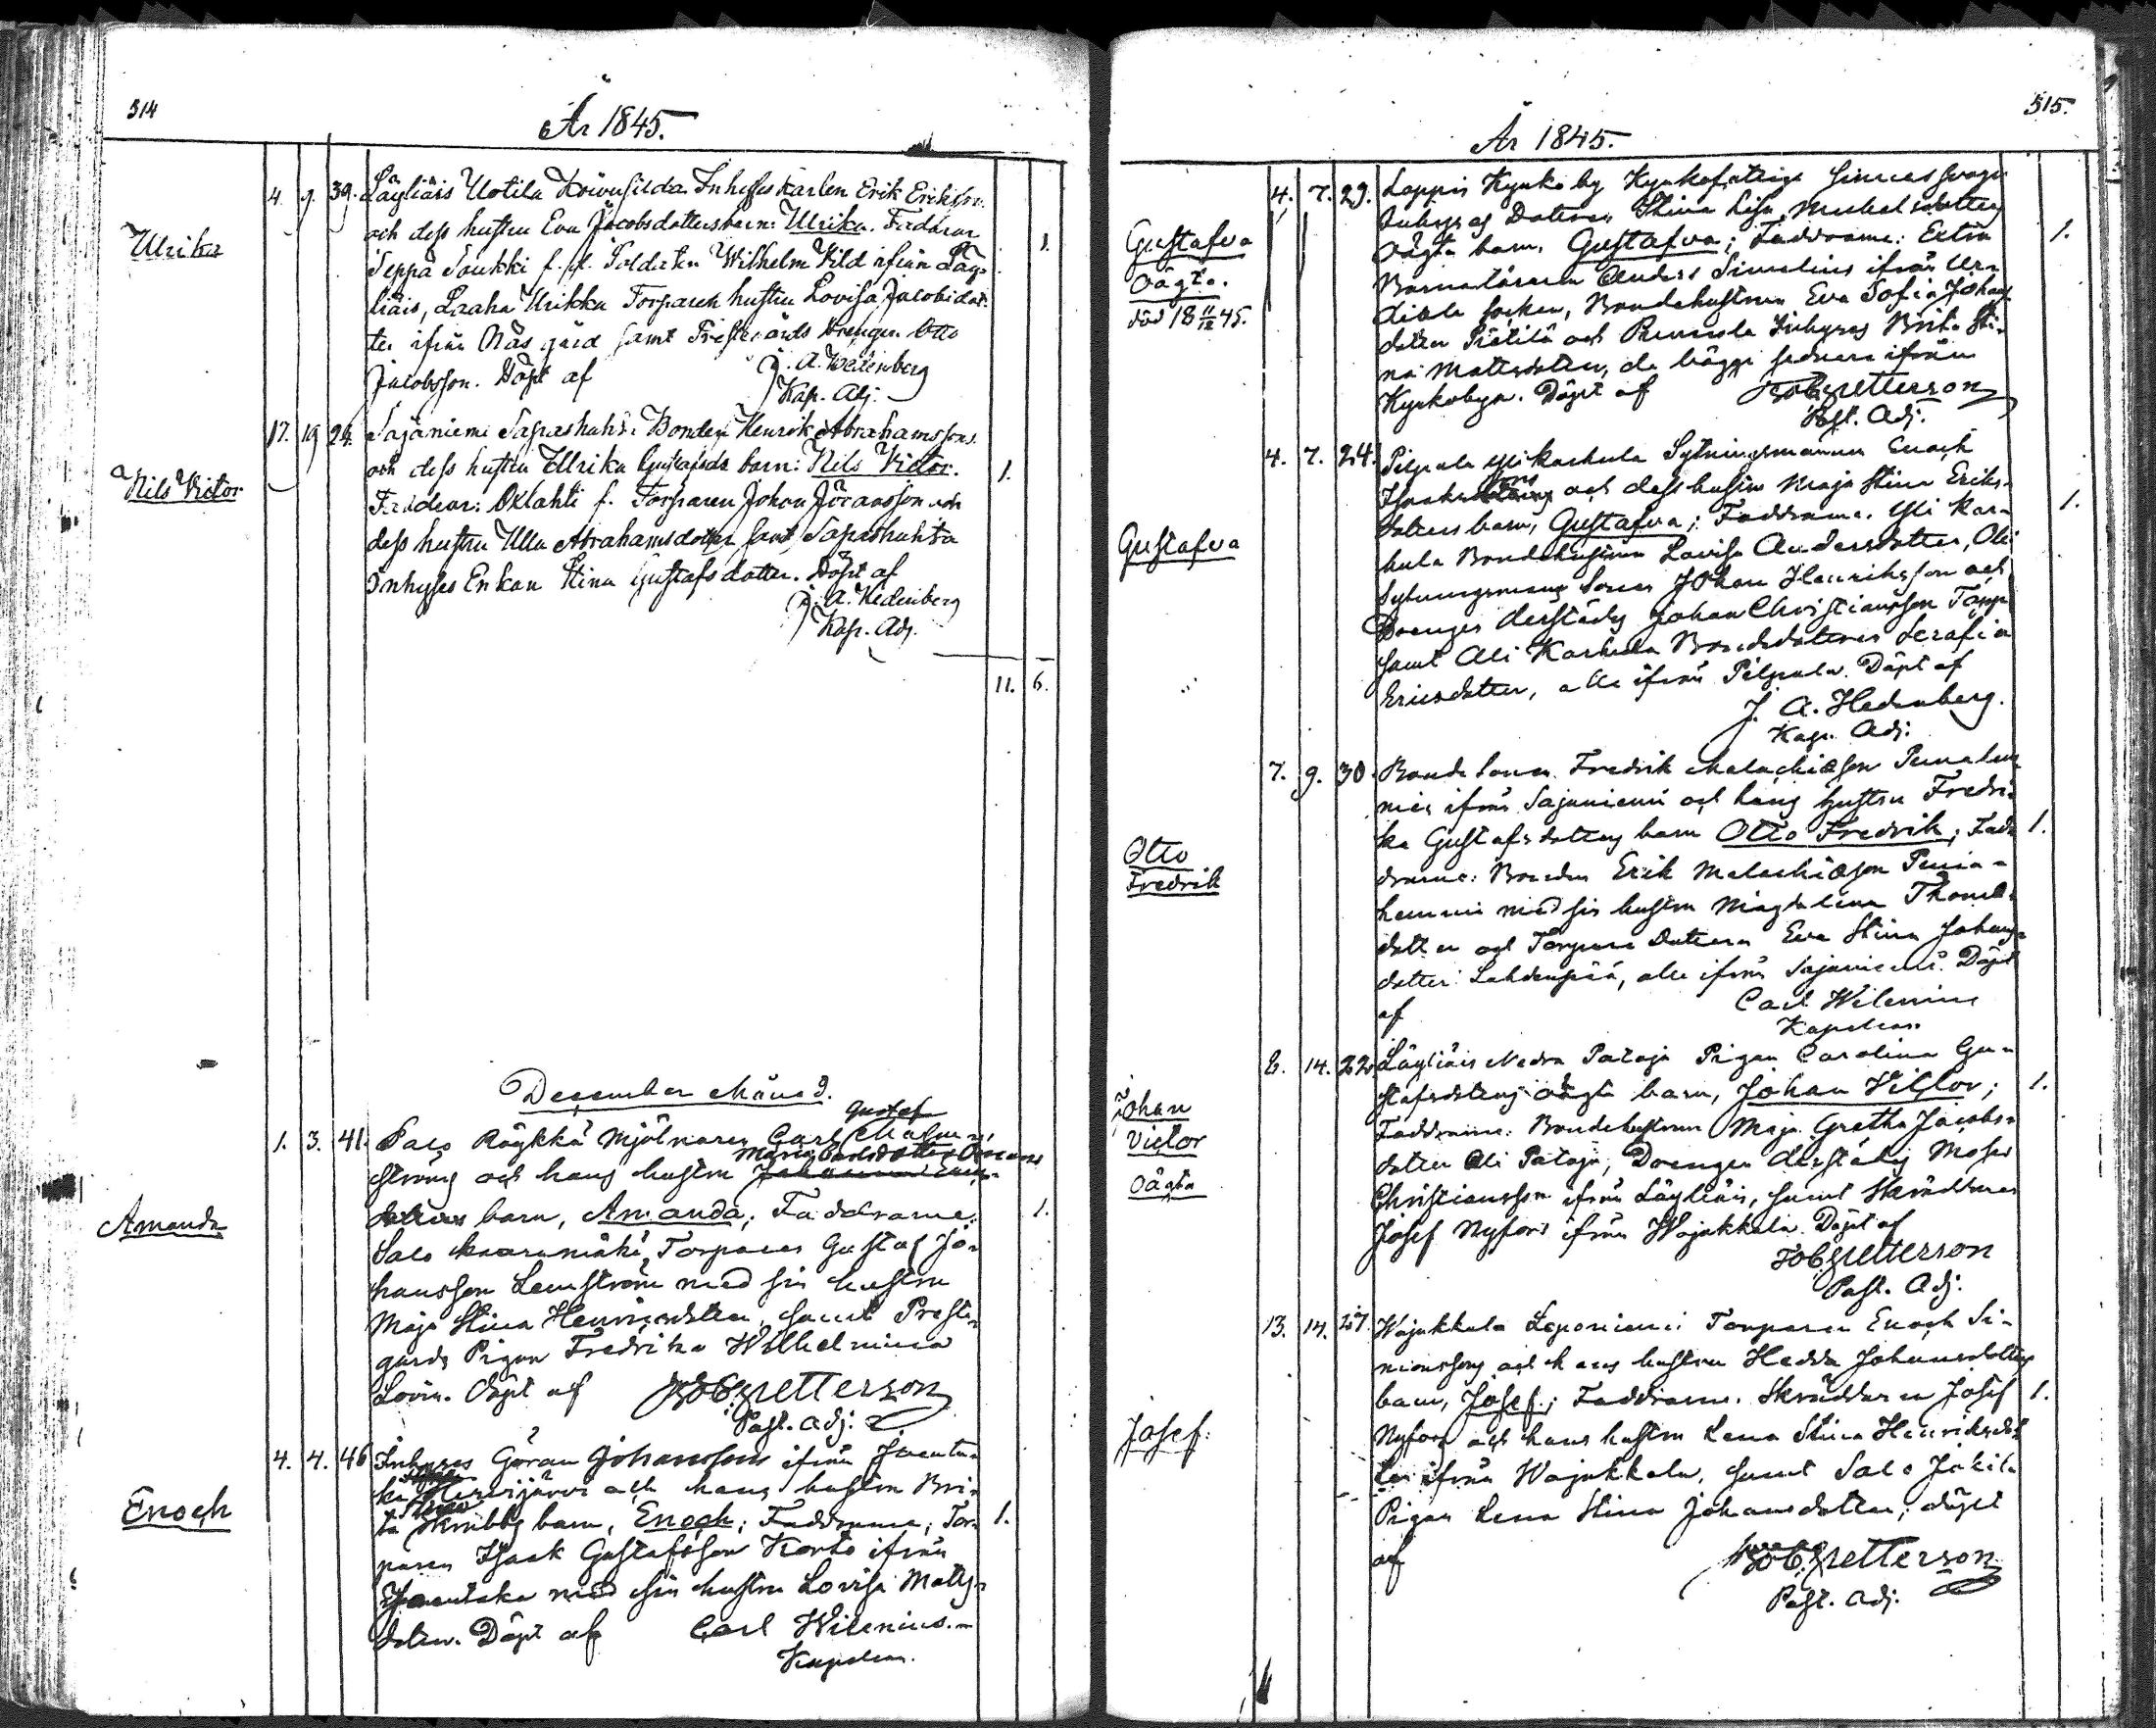 514
År 1845.
Ulrika
4. 9. 39. Läyliäis Uotila Koivusilda Inhyses Karlen Erik Eriksson
och dess hustru Eva Jacobsdotters barn: Ulrika. Faddrar
Seppä Soukki f. d. Soldaten Wilhelm Vild ifrån Läy-
liäis, Laaha Urikka Torparen hustru Lovisa Jacobsdot-
ter ifrån Näs gård samt Prestgårds Drengen Otto
Jacobsson. Döpt af J. A. Hedenberg
Kap. Adj.
1.
Nils Victor
17. 19 24. Sajaniemi Saprashuhta Bonden Henrik Abrahamssons
och dess hustru Ullrika Gustafsds barn: Nils Victor.
Faddrar: Oxlahti f. Torparen Johan Jöransson och
dess hustru Ulla Abrahamsdotter samt Saprashuhta
Inhyses Enkan Stina Gustafsdotter. Döpt af
J. A. Hedenberg
Kap. Adj.
1.
11. 6.
December Månad.
Amanda
Gustaf
1. 3. 41. Salo Räykkä Mjölnaren Carl
Maria Carlsdotter
ströms och hans hustru
dotters barn, Amanda; Faddrarne:
Salo Torparen Gustaf Jo-
hansson Lemström med sin hustru
Maja Stina Henricsdotter, samt Prest-
gårds Pigan Fredrika Wilhelmina
Lovin. Döpt af Petterson
Past. Adj.
1.
Enoch
4. 4. 46 Inhyses Göran Johanssons ifrån Joentu-
ka Hirvijärvi och hans hustru Bri-
ta barn, Enoch; Faddrarne; Tor-
paren Isaak Gustafsson Korto ifrån
Joentaka med sin hustru Lovisa Matts-
dotter. Döpt af Carl Wilenius.
Kapelan.
1.
515.
År 1845.
Gustafva
Oägta.
död 18 11/12 45.
4. 7. 29. Loppis Kyrkoby Kyrkofattige
Inhyses Dottern Stina Lisa Michelsdotters
oägta barn, Gustafva; Faddrarne:
Anders Simelius ifrån Ur-
diala socken, Bondehustrun Eva Sofia Johans-
dotter Pietilä och Inhyses Brita Sti-
na Mattsdotter, de bägge sednare ifrån
Kyrkobyn. Döpt af Petterson
Past. Adj.
1.
Gustafva
4. 7. 24. Pilpala Yli Karhula Sytningsmannen Enoch
Isaakssons och dess hustru Maja Stina Eriks-
dotters barn, Gustafva; Faddrarne. Yli Kar-
hula Bondehustrun Lovisa Andersdotter, Ali
Sytningsmans Sonen Johan Henriksson och
Drengen derstädes Johan Christiansson
samt Ali Karhula Bondedottern Serafia
Ericsdotter, alla ifrån Pilpala. Döpt af
J. A. Hedenberg.
Kap. Adj.
1.
Otto
Fredrik
7. 9. 30. Bonde Sonen Fredrik Malachiæson
ifrån Sajaniemi och hans hustru Fredri-
ka Gustafsdotters barn Otto Fredrik; Fad-
drarne: Bonden Erik Malachiæson
med sin hustru Magdalena Thomas-
dotter och Torpare Dottern Eva Stina Johans-
dotter Lahdenpää, alla ifrån Sajaniemi. Döpt
af Carl Wilenius
Kapelan.
1.
Johan
Victor
Oägta
6. 14. 22. Läyliäis Nedra Pataja Pigan Carolina Gu-
stafsdotters oägta barn, Johan Victor;
Faddrarne: Bondehustrun Maja Gretha Jacobs-
dotter Ali Pataja, Drengen derstädes Moses
Christiansson ifrån Läyliäis, samt Skräddaren
Josef Nyfors ifrån Wojakkala. Döpt af
Petterson
Past. Adj.
1.
Josef.
13. 14. 27. Wojakkala Leponiemi Torparen Enoch Si-
monssons och hans hustru Hedda Johansdotters
barn, Josef; Faddrarne. Skräddaren Josef
Nyfors och hans hustru Lena Stina Henriksdot-
ter ifrån Wojakkala, samt Salo Jokila
Pigan Lena Stina Johansdotter; döpt
af Petterson
Past. Adj.
1.